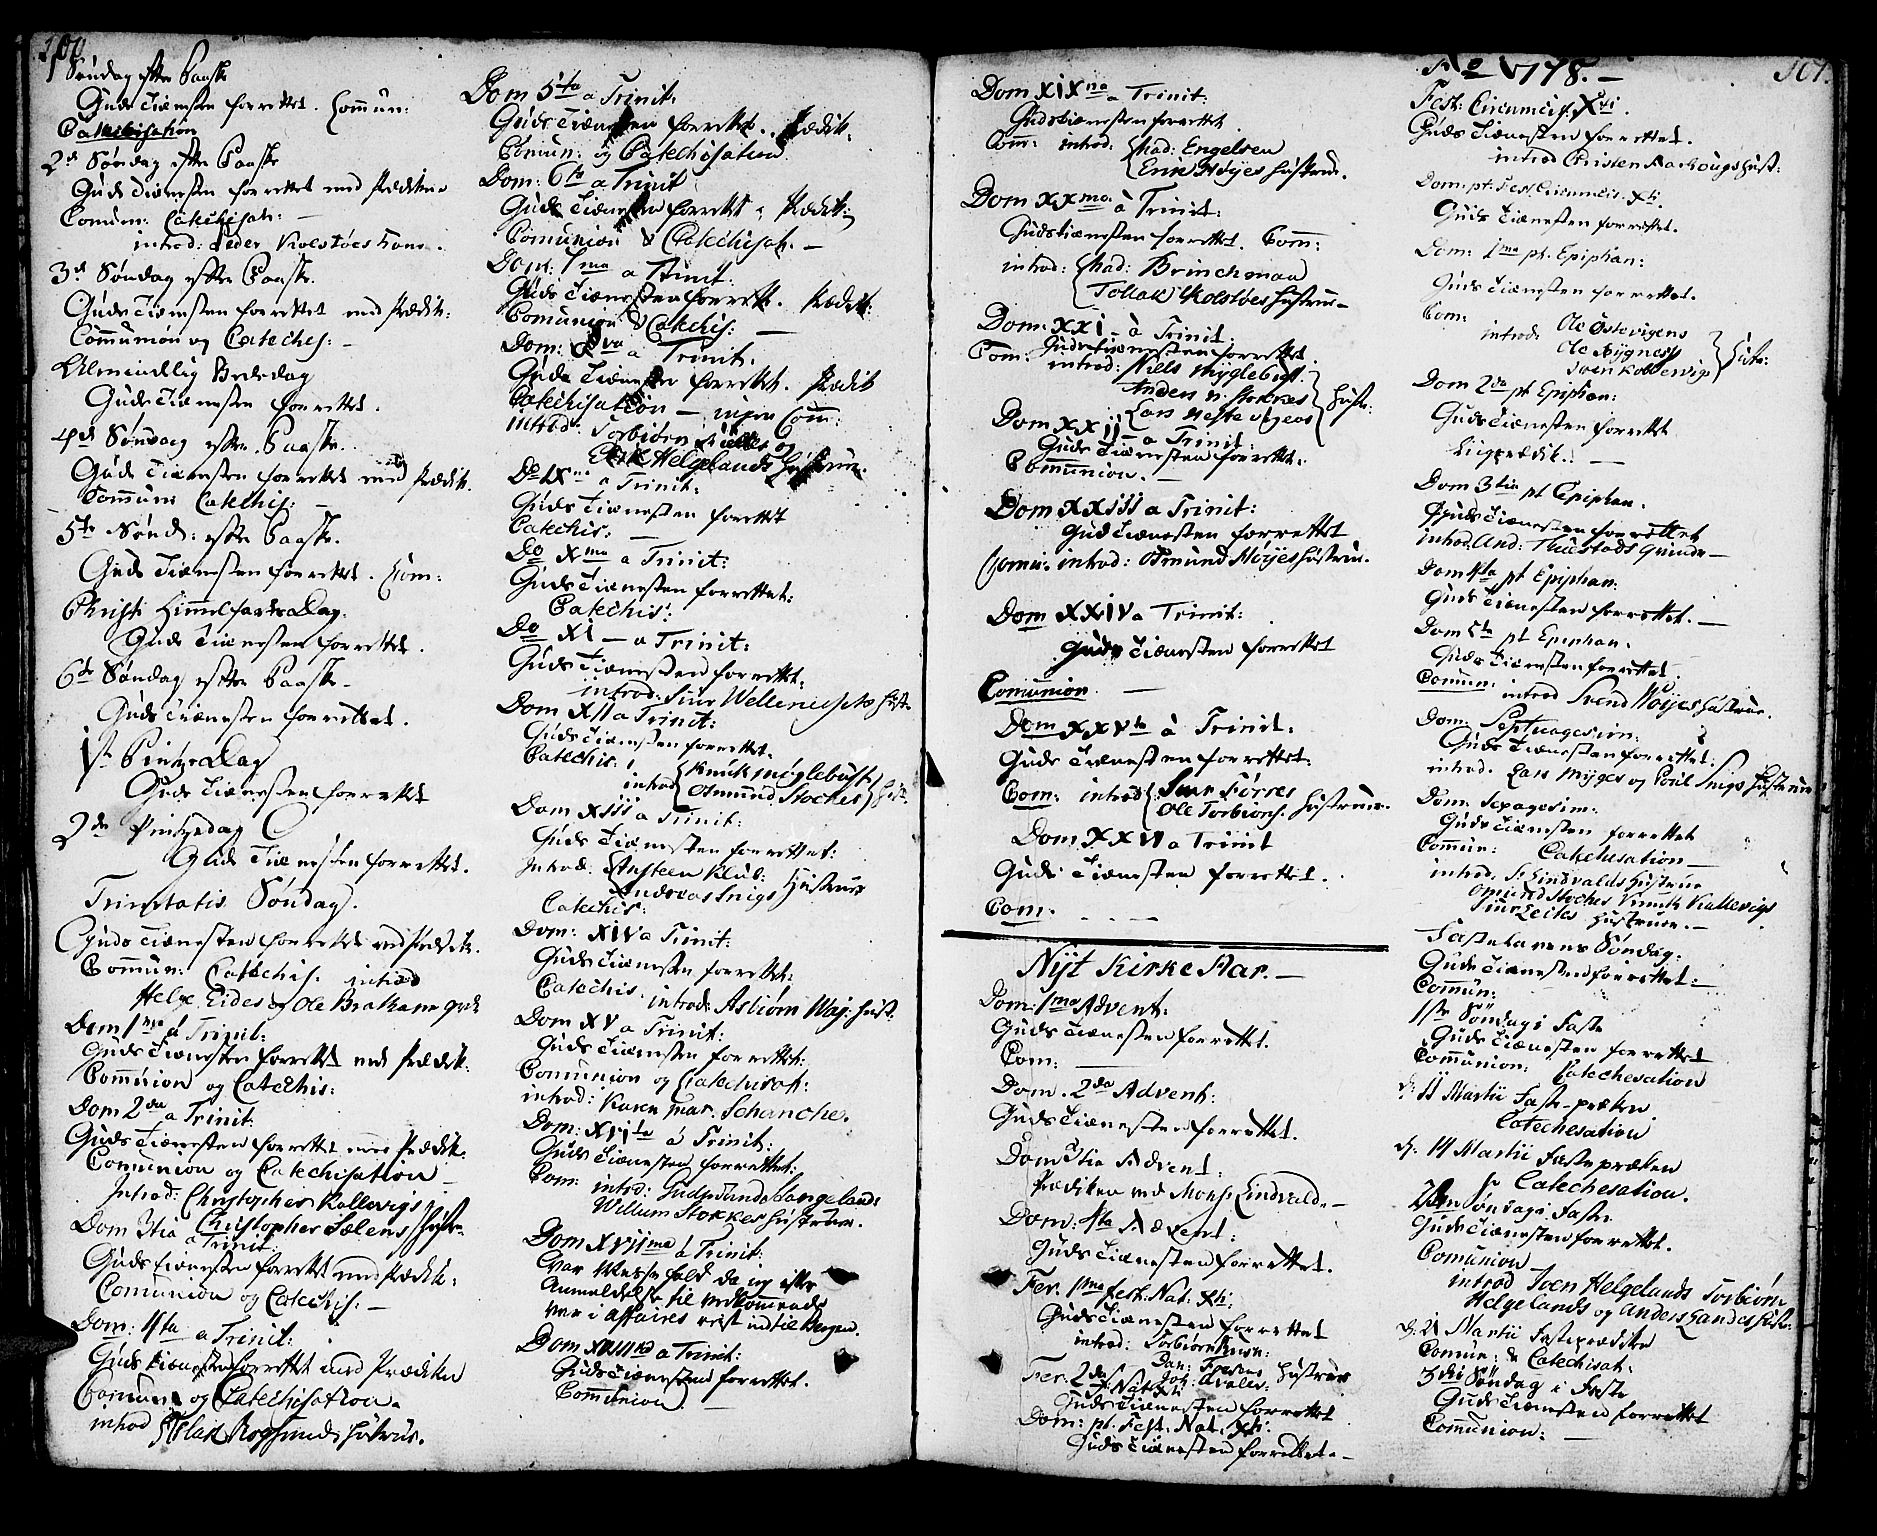 100
1 Søndag efter Paaske
Guds Tienesten forrettet. Commun:
Catechisation
2d Søndag efter Paaske
Guds Tienesten forrettet med Prædiken
Comun: Catechisat: —
introd: Peder Kolstøes Kone.
3d Søndag efter Paaske.
Guds Tienesten forrettet med Prædik:
Communion og Cateches: —
Almindelig Bededag
Guds Tienesten forrettet.
4de Søndag efter Paaske.
Guds Tienesten forrettet med Prædik.
Commun: Catechis: —
5te Sønd: efter Paaske.
Guds Tienesten forrettet. Com:
Christi Himmelfarts Dag.
Guds Tienesten forrettet.
6de Søndag efter Paaske —
Guds Tienesten forrettet.
1st Pintze Dag
Guds Tienesten forrettet
2de Pintzedag
Guds Tienesten forrettet.
Trinitatis Søndag.
Guds Tienesten forrettet med Prædik.
Commun: Catechis: introd
Helge Eides og Ole Brathame
Dom 1ma a Trinit:
Guds Tienesten forrettet med Prædik:
Communion og Catechis:
Dom 2da a Trinit:
Guds Tienesten forrettet med Prædik:
Comunion og Catechisation —
Introd: Christopher Kallevigs
Christopher Sælens Hustr:
Dom 3tia a Trinit:
Guds Tienesten forrettet med Prædik:
Comunion og Catechis: —
Dom: 4ta a Trinit:
Guds Tienesten forrettet med Prædiken
Comun: og Catechisation.
introd Rogsunds Hustrue.
Dom 5ta a Trinit:
Guds Tienesten forrettet. Prædik:
Comun: og Catechisation
Dom: 6ta a Trinit
Guds Tienesten forrettet Prædik:
Comunion & Catechisat. —
Dom: 7ma a Trinit.
Guds Tienesten forrettet. Prædik:
Comunion & Catechis: —
Dom: 8va a Trinit.
Guds Tienesten forrettet. Prædik
Catechisation — ingen Com:
introd: Torbiørn og
Erik Helgelands Hustruer.
Do IXna a Trinit:
Guds Tienesten forrettet
Catechis: —
Do Xma a Trinit:
Guds Tienesten forrettet:
Catechis:
Do XI — a Trinit:
Guds Tienesten forrettet.
introd: Siur Hust:
Dom XII a Trinit:
Guds Tienesten forrettet.
Catechis:
introd { Knuk Møglebust
Osmund Stoches } Hust:
Dom XIII a Trinit:
Guds Tienesten forrettet:
Introd: Ansteen Klub:
Andreas Snigs Hustruer
Catechis:
Dom: XIV a Trinit:
Guds Tienesten forrettet:
Catechis. introd: Asbiørn Waj: Hust:
Dom XV a Trinit:
Guds Tienesten forrettet:
Comunion og Catechisat:
introd: Karen Mar. Schanche.
Dom: XVIta á Trinit:
Guds Tienesten forrettet:
Com: introd: Gudmund Langelands
Willum Stokkes Hustruer.
Dom XVIIma á Trinit:
var Messefald da jeg efter
Anmeldelse til vedkommende
var i affaires reist ind til Bergen.
Dom XVIII a Trinit:
Guds Tienesten forrettet.
Communion —
Dom XIXna a Trinit:
Gudstienesten forrettet
Com: introd: { Mad: Engelsen
Erik Høijes Hustrue.
Dom XXma à Trinit:
Gudstienesten forrettet. Com:
introd: { Mad: Brinchman
Tollak Kolstøes Hustrue —
Dom: XXI — à Trinit
Guds Tienesten forrettet.
Com: introd: Nills Myglebust.
Anders
Lars } Hustr:
Dom XXII — a Trinit:
Guds Tienesten forrettet.
Communion. —
Dom XXIII a Trinit:
Guds Tienesten forrettet
Comu: introd: Osmund Høijes Hustrue.
Dom XXIV a Trinit:
Guds Tienesten forrettet
Comunion. —
Dom XXVta à Trinit.
Guds Tienesten forrettet:
Com: introd { Siur Førres
Ole Torbiørns. Hustruer.
Dom XXVI a Trinit
Guds Tienesten forrettet.
Com:
Nÿt Kirke Aar. —
Dom: 1ma Advent:
Guds Tienesten forrettet.
Com: —
Dom. 2da Advent:
Guds Tienesten forrettet.
Dom 3tia Advent:
Prædiken ved Mons: Lindvald. —
Dom: 4ta Advent:
Guds Tienesten forrettet.
Fer. 1ma fest: Nat: Xti:
Guds Tienesten forrettet
introd: Torbiørn
Hustruer
Fer. 2da F: Nat: Xti
Guds Tienesten forrettet
Dom: pt. Fest. Nat. Xti:
Guds Tienesten forrettet. —
101.
Ao 1778. —
Fest: Circumcis: Xti.
Guds Tienesten forrettet.
introd Christen Aarhougs Hust:
Dom: pt. Fest Circumcis. Xti.
Guds Tienesten forrettet.
Dom: 1ma pt. Epiphan:
Guds Tienesten forrettet.
Com:
introd: Ole Østevigens
Ole Nygness
Sven Kollervigs } Hustr:
Dom 2da pt Epiphan:
Guds Tienesten forrettet
Ligprædik: —
Dom 3tia pt Epiphan.
Guds Tienesten forrettet
introd. And: Thuestads qvinde —
Dom 4ta pt Epiphan:
Guds Tienesten forrettet. —
Dom 5ta pt Epiphan.
Guds Tienesten forrettet
Comun: introd Svend Høijes Hustrue.
Dom: Septuagesim:
Guds Tienesten forrettet:
introd. Lars Myges og Poul Snigs Hustruer
Dom: Sexagesim:
Guds Tienesten forrettet
Commun: Catechesation —
introd. Lindvalds Hustrue
Omund Stoches Knuk Kallevigs
Siur Leites Hustruer. —
Fastelavens Søndag:
Guds Tienesten forrettet: —
Commun:
1ste Søndag i Faste
Guds Tienesten forrettet
Communion: Catechesation
d: 11 Martii Faste-præken.
Catechesation
d: 14 Martii Fastepræken
Catechesation.
2den Søndag i Faste
Guds Tienesten forrettet.
Comunion
introd Iven Helgelands Torbiørn
Helgelands og Anders Sandes Hustr:
d: 21 Martii Fasteprædiken
Comun: & Catechisat:
3die Søndag i Faste
Guds Tienesten forrettet
Communion: —